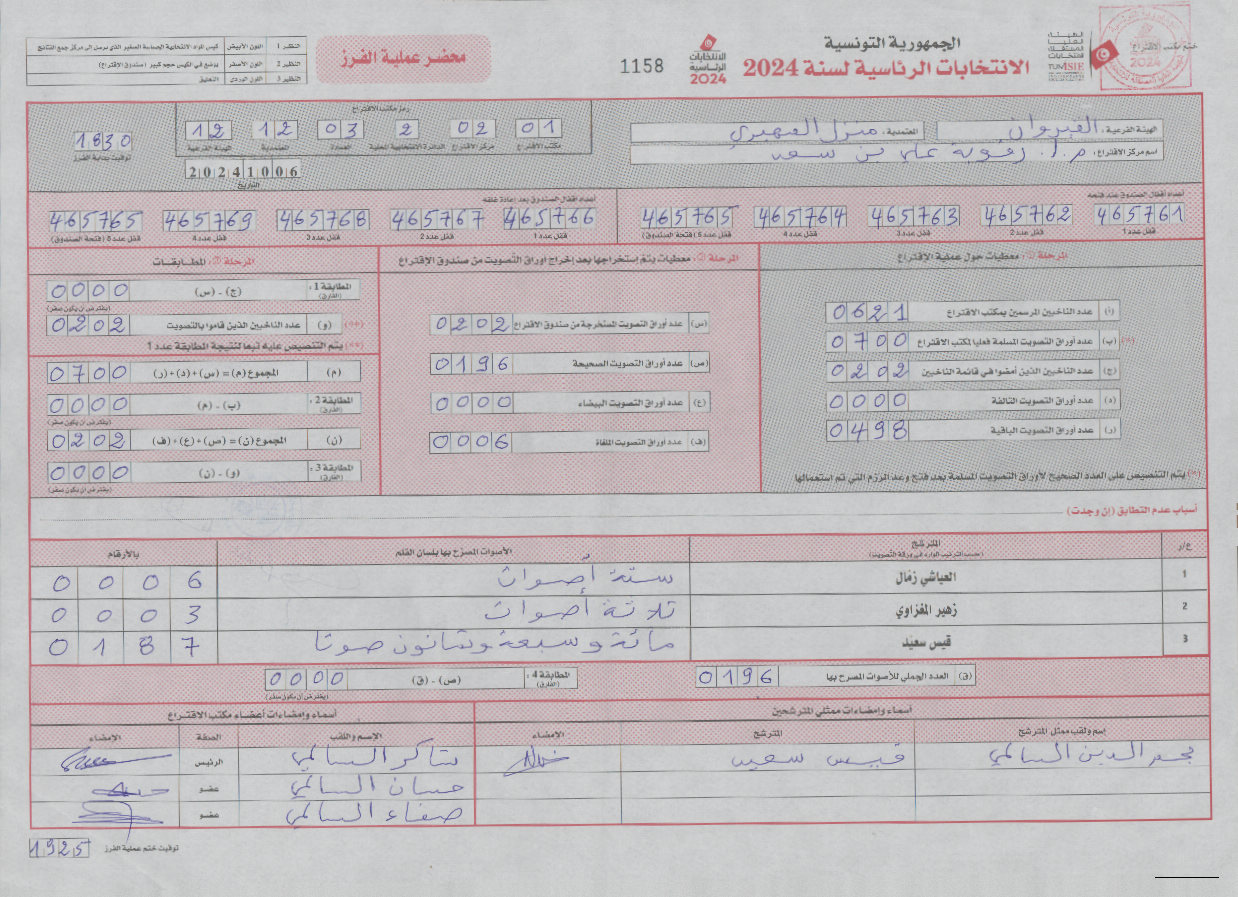 ختم مكتب الاقتراع
الهيئة
العليا
المستقلة
للانتخابات
TUNISIE
الجمهورية التونسية
الانتخابات الرئاسية لسنة 2024
الانتخابات
الرئاسية
2024
1158
محضر عملية الفرز
النظير 1 اللون الأبيض كيس المواد الانتخابية الحساسة الصغير الذي يرسل الى مركز جمع النتائج
النظير 2 اللون الأصفر يوضع في الكيس حجم كبير (صندوق الاقتراع)
النظير 3 اللون الوردي التعليق
الهيئة الفرعية: القيروان المعتمدية: منزل المهيري
اسم مركز الاقتراع: م.ا. رقوبة علي بن سعيد
رمز مكتب الاقتراع
01 02 2 03 12 12
مكتب الاقتراع مركز الاقتراع الدائرة الانتخابية المحلية العمادة المعتمدية الهيئة الفرعية
20241006
التاريخ
1830
توقيت بداية الفرز
أعداد أقفال الصندوق عند فتحه
465761 465762 465763 465764 465765
قفل عدد 1 قفل عدد 2 قفل عدد 3 قفل عدد 4 قفل عدد 5 (فتحة الصندوق)
أعداد أقفال الصندوق بعد إعادة غلقه
465766 465767 465768 465769 465765
قفل عدد 1 قفل عدد 2 قفل عدد 3 قفل عدد 4 قفل عدد 5 (فتحة الصندوق)
المرحلة ①: معطيات حول عملية الاقتراع
(أ) عدد الناخبين المرسمين بمكتب الاقتراع 0621
(*) (ب) عدد أوراق التصويت المسلمة فعليا لمكتب الاقتراع 0700
(ج) عدد الناخبين الذين أمضوا في قائمة الناخبين 0202
(د) عدد أوراق التصويت التالفة 0000
(ر) عدد أوراق التصويت الباقية 0498
(*) يتم التنصيص على العدد الصحيح لأوراق التصويت المسلمة بعد فتح وعد الرزم التي تم استعمالها
المرحلة ②: معطيات يتم إستخراجها بعد إخراج أوراق التصويت من صندوق الاقتراع
(س) عدد أوراق التصويت المستخرجة من صندوق الاقتراع 0202
(ص) عدد أوراق التصويت الصحيحة 0196
(ع) عدد أوراق التصويت البيضاء 0000
(ف) عدد أوراق التصويت الملغاة 0006
المرحلة ③: المطابقات
المطابقة 1: (الفارق) (ج) - (س) 0000
(يفترض أن يكون صفر)
(**) (و) عدد الناخبين الذين قاموا بالتصويت 0202
(**) يتم التنصيص عليه تبعا لنتيجة المطابقة عدد 1
(م) المجموع (م) = (س) + (د) + (ر) 0700
المطابقة 2: (الفارق) (ب) - (م) 0000
(يفترض أن يكون صفر)
(ن) المجموع (ن) = (ص) + (ع) + (ف) 0202
المطابقة 3: (الفارق) (و) - (ن) 0000
(يفترض أن يكون صفر)
أسباب عدم التطابق (إن وجدت)
ع/ر المترشح الأصوات المصرح بها بلسان القلم بالأرقام
(حسب الترتيب الوارد في ورقة التصويت)
1 العياشي زمّال ستة أصوات 0006
2 زهير المغزاوي ثلاثة أصوات 0003
3 قيس سعيّد مائة وسبعة وثمانون صوتا 0187
(ق) العدد الجملي للأصوات المصرح بها 0196 المطابقة 4: (الفارق) (ص) - (ق) 0000
(يفترض أن يكون صفر)
أسماء وإمضاءات ممثلي المترشحين
إسم ولقب ممثل المترشح المترشح الإمضاء
نجم الدين السالمي قيس سعيد
أسماء وإمضاءات أعضاء مكتب الاقتراع
الإسم واللقب الصفة الإمضاء
شاكر السالمي الرئيس
حسان السالمي عضو
صفاء السالمي عضو
توقيت ختم عملية الفرز 1925